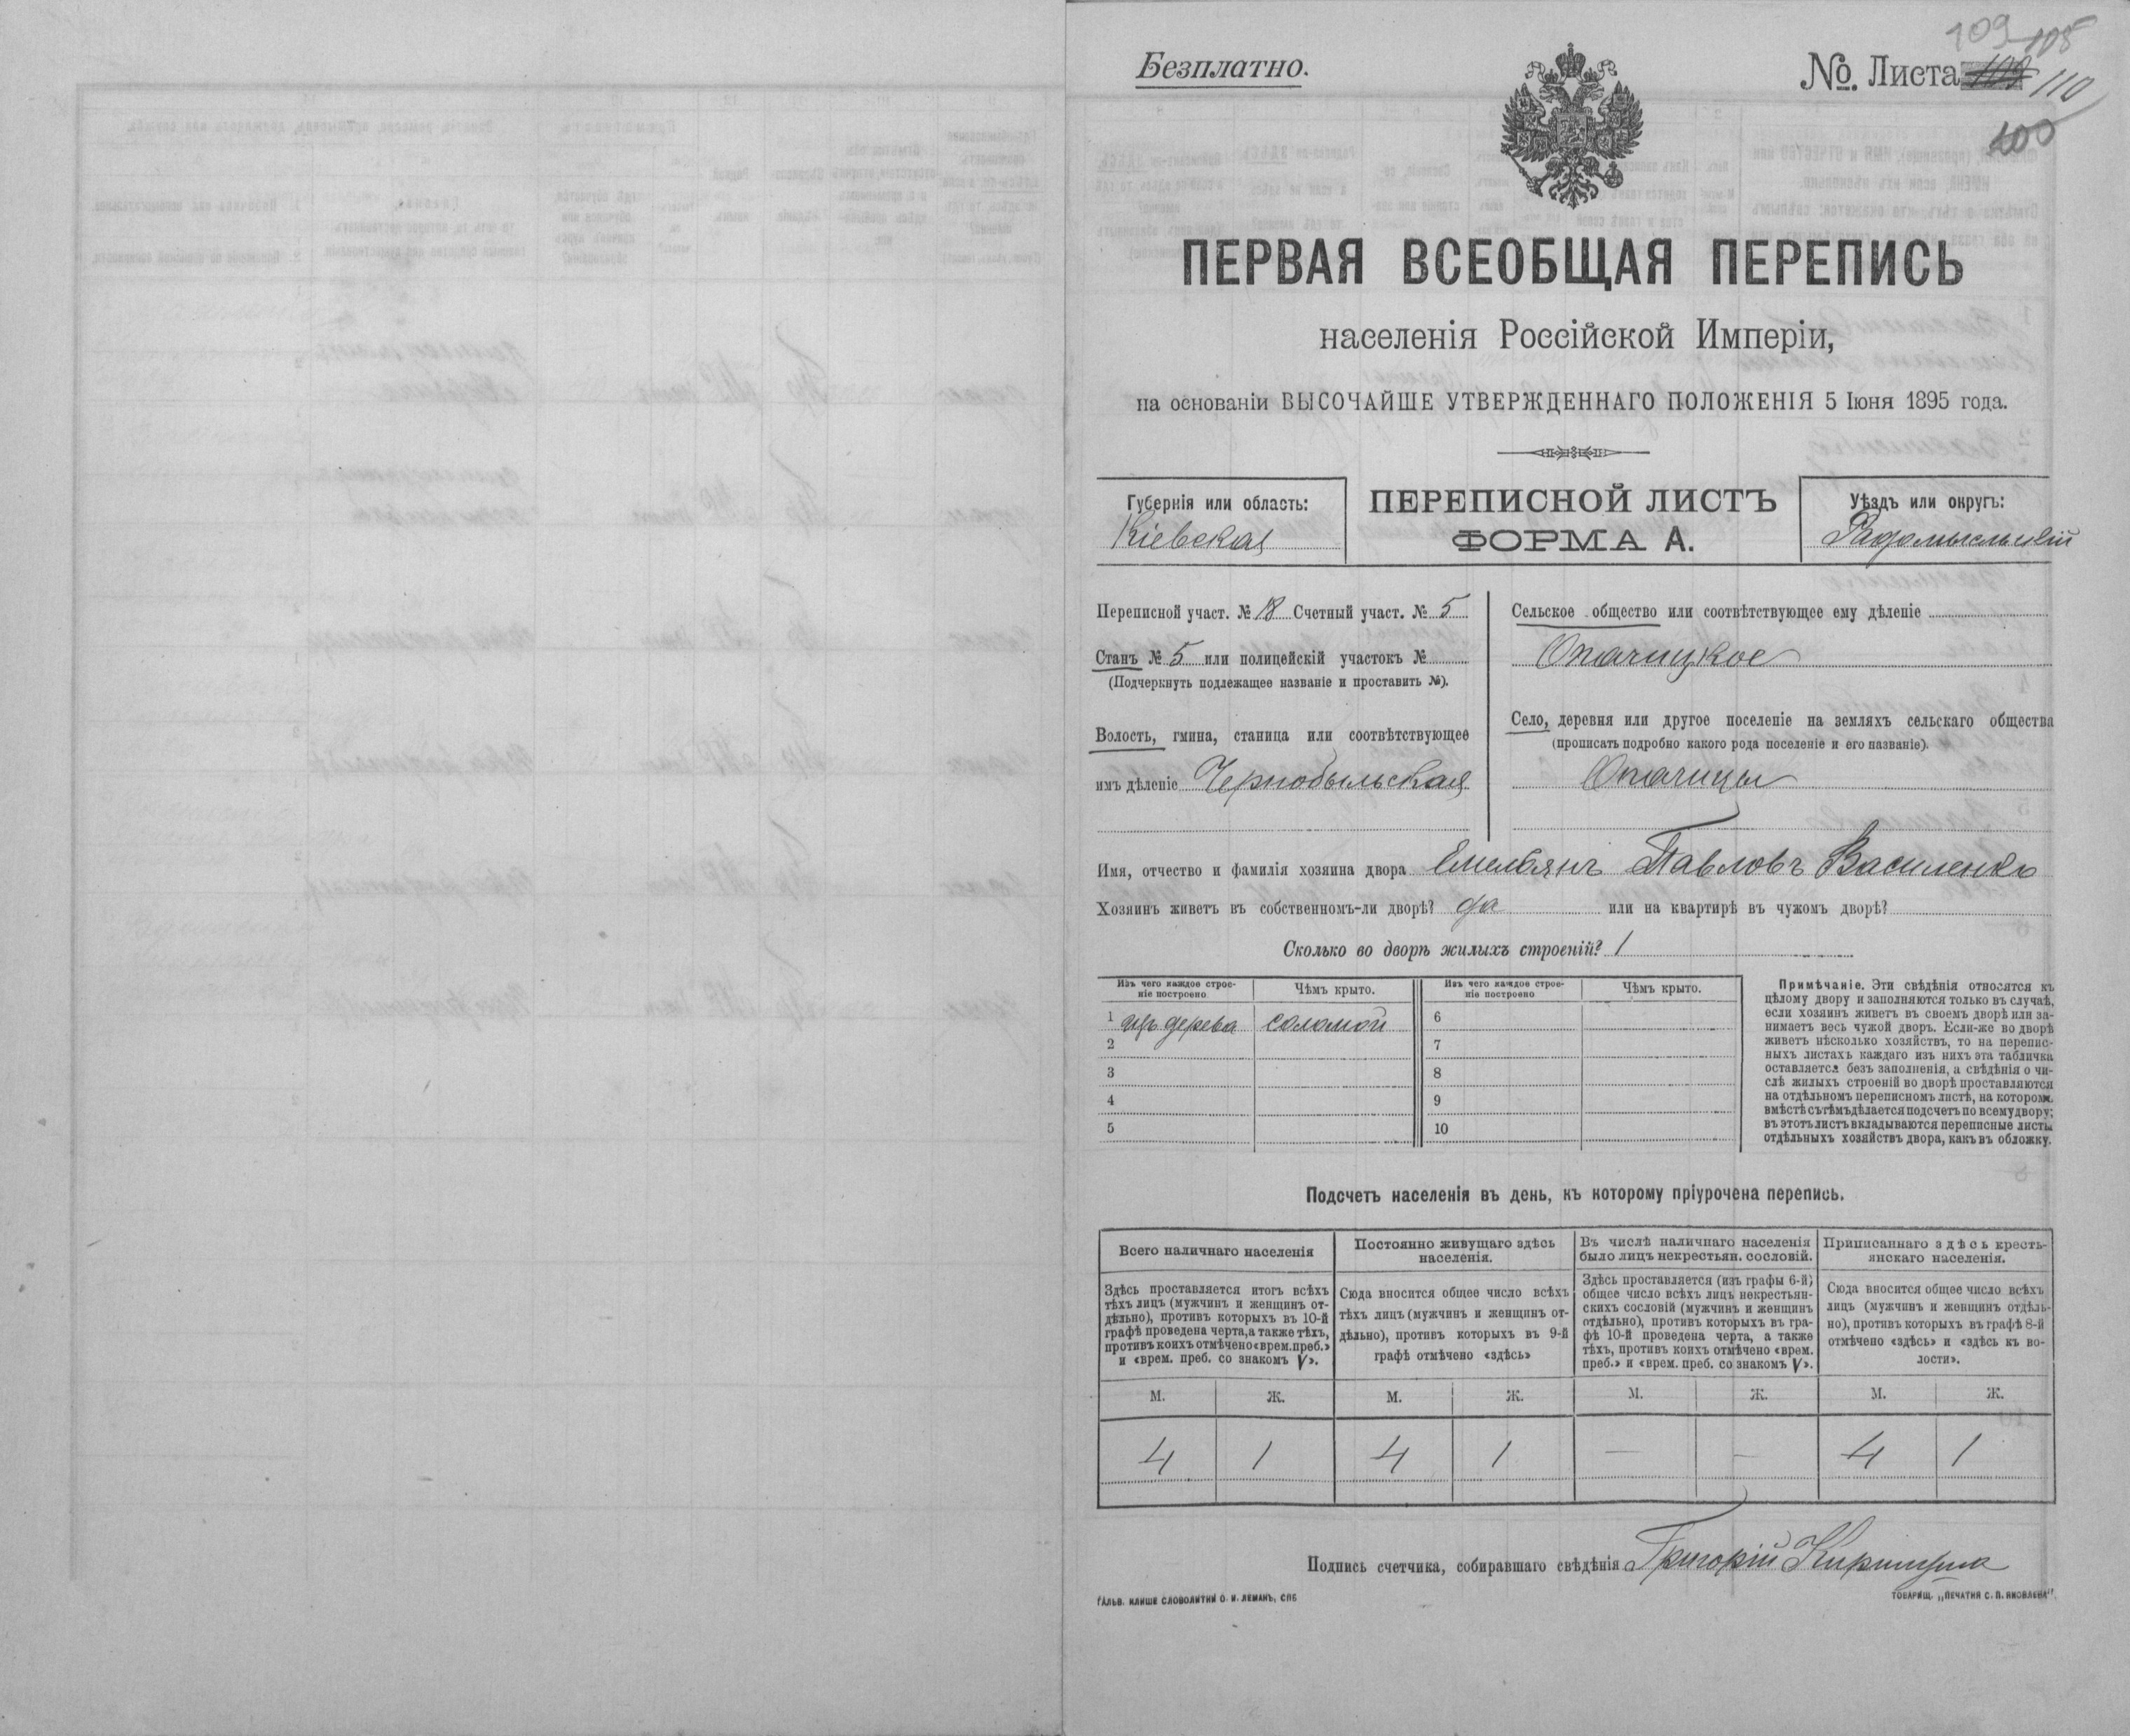 109 108
Безплатно.
№. Листа 110
100
ПЕРВАЯ ВСЕОБЩАЯ ПЕРЕПИСЬ
населенія Россійской Имперіи,
на основаніи ВЫСОЧАЙШЕ УТВЕРЖДЕННАГО ПОЛОЖЕНІЯ 5 Іюня 1895 года.
Губернія или область:
Кіевская
ПЕРЕПИСНОЙ ЛИСТЪ
ФОРМА А.
Уѣздъ или округъ:
Радомысльскій
Переписной участ. № 18 Счетный участ. № 5
Станъ № 5 или полицейскій участокъ №
(Подчеркнуть подлежащее названіе и проставить №).
Волость, гмина, станица или соотвѣтствующее
имъ дѣленіе Чернобыльская
Сельское общество или соотвѣтствующее ему дѣленіе
Опачицкое
Село, деревня или другое поселеніе на земляхъ сельскаго общества
(прописать подробно какого рода поселеніе и его названіе).
Опачицы
Имя, отчество и фамилія хозяина двора Емельянъ Павловъ Василенко
Хозяинъ живетъ въ собственномъ-ли дворѣ? да или на квартирѣ въ чужомъ дворѣ?
Сколько во дворѣ жилыхъ строеній? 1
Изъ чего каждое строе-
ніе построено
Чѣмъ крыто.
Изъ чего каждое строе-
ніе построено
Чѣмъ крыто.
1 изъ дерева соломой 6
2 7
3 8
4 9
5 10
Примѣчаніе. Эти свѣдѣнія относятся къ
цѣлому двору и заполняются только въ случаѣ,
если хозяинъ живетъ въ своемъ дворѣ или за-
нимаетъ весь чужой дворъ. Если-же во дворѣ
живетъ нѣсколько хозяйствъ, то на перепис-
ныхъ листахъ каждаго изъ нихъ эта табличка
оставляется безъ заполненія, а свѣдѣнія о чи-
слѣ жилыхъ строеній во дворѣ проставляются
на отдѣльномъ переписномъ листѣ, на которомъ
вмѣстѣ съ тѣмъ дѣлается подсчетъ по всему двору;
въ этотъ листъ вкладываются переписные листы
отдѣльныхъ хозяйствъ двора, какъ въ обложку.
Подсчетъ населенія въ день, къ которому пріурочена перепись.
Всего наличнаго населенія
Постоянно живущаго здѣсь
населенія.
Въ числѣ наличнаго населенія
было лицъ некрестьян. сословій.
Приписаннаго здѣсь кресть-
янскаго населенія.
Здѣсь проставляется итогъ всѣхъ
тѣхъ лицъ (мужчинъ и женщинъ от-
дѣльно), противъ которыхъ въ 10-й
графѣ проведена черта, а также тѣхъ,
противъ коихъ отмѣчено «врем. преб.»
и «врем. преб. со знакомъ V».
Сюда вносится общее число всѣхъ
тѣхъ лицъ (мужчинъ и женщинъ от-
дѣльно), противъ которыхъ въ 9-й
графѣ отмѣчено «здѣсь»
Здѣсь проставляется (изъ графы 6-й)
общее число всѣхъ лицъ некрестьян-
скихъ сословій (мужчинъ и женщинъ
отдѣльно), противъ которыхъ въ гра-
фѣ 10-й проведена черта, а также
тѣхъ, противъ коихъ отмѣчено «врем.
преб.» и «врем. преб. со знакомъ V».
Сюда вносится общее число всѣхъ
лицъ (мужчинъ и женщинъ отдѣль-
но), противъ которыхъ въ графѣ 8-й
отмѣчено «здѣсь» и «здѣсь къ во-
лости».
М. Ж. М. Ж. М. Ж. М. Ж.
4 1 4 1 — — 4 1
Подпись счетчика, собиравшаго свѣдѣнія Григорій
ГАЛЬВ. КЛИШЕ СЛОВОЛИТНИ О. И. ЛЕМАНЪ, СПБ
ТОВАРИЩ. „ПЕЧАТНЯ С. П. ЯКОВЛЕВА".